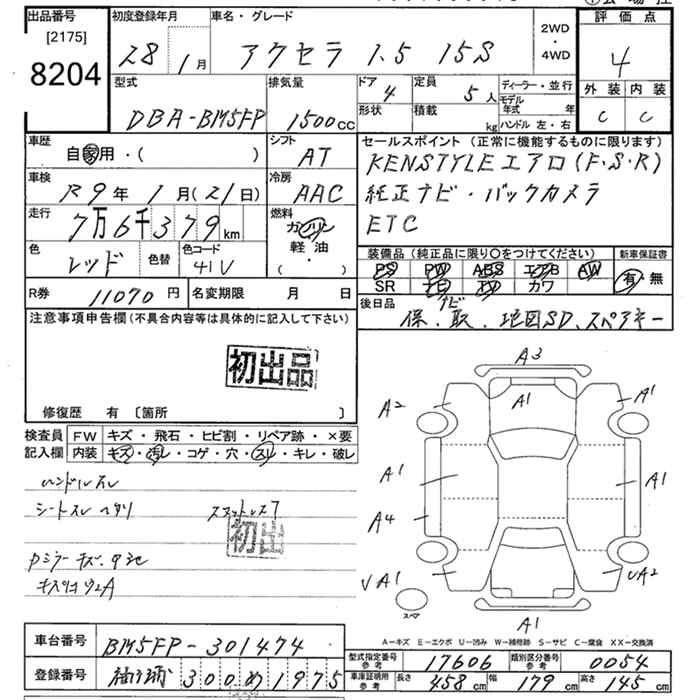 出品番号
[2175]
8204
初度登録年月
28 1月
車名・グレード
アクセラ 1.5 15S
2WD
・
4WD
評価点
4
外装 内装
C C
型式
DBA-BM5FP
排気量
1500cc
ドア
4
定員
5人
形状
積載
kg
ディーラー・並行
モデル年式 年
ハンドル 左・右
車歴
自家用・( )
シフト
AT
車検
R9年1月(21日)
冷房
AAC
走行
7万6千379km
燃料
ガソリン
軽油
・
( )
色
レッド
色替
色コード
41V
R券
11070円
名変期限 月 日
セールスポイント(正常に機能するものに限ります)
KENSTYLEエアロ(F,S,R)
純正ナビ・バックカメラ
ETC
装備品(純正品に限り○をつけてください)
PS PW ABS エアB AW
SR ナビ TV カワ
新車保証書
有・無
後日品
ナビ
保.取.地図SD.スペアキー
注意事項申告欄(不具合内容等は具体的に記入して下さい)
初出品
修復歴 有〔箇所 〕
検査員記入欄
FW キズ・飛石・ヒビ割・リペア跡・×要
内装 キズ・汚レ・コゲ・穴・スレ・キレ・破レ
ハンドルスレ
シートスレ ヘタリ
初出
A3
A1
A2
A1
A1
A1
A4
VA1
UA2
A1
スペア
A-キズ E-エクボ U-凹み W-補修跡 S-サビ C-腐食 XX-交換済
車台番号
BM5FP-301474
登録番号
300 め 1975
型式指定番号
参考
17606
類別区分番号
参考
0054
車庫証明用
参考
長さ 458cm 幅 179cm 高さ 145cm